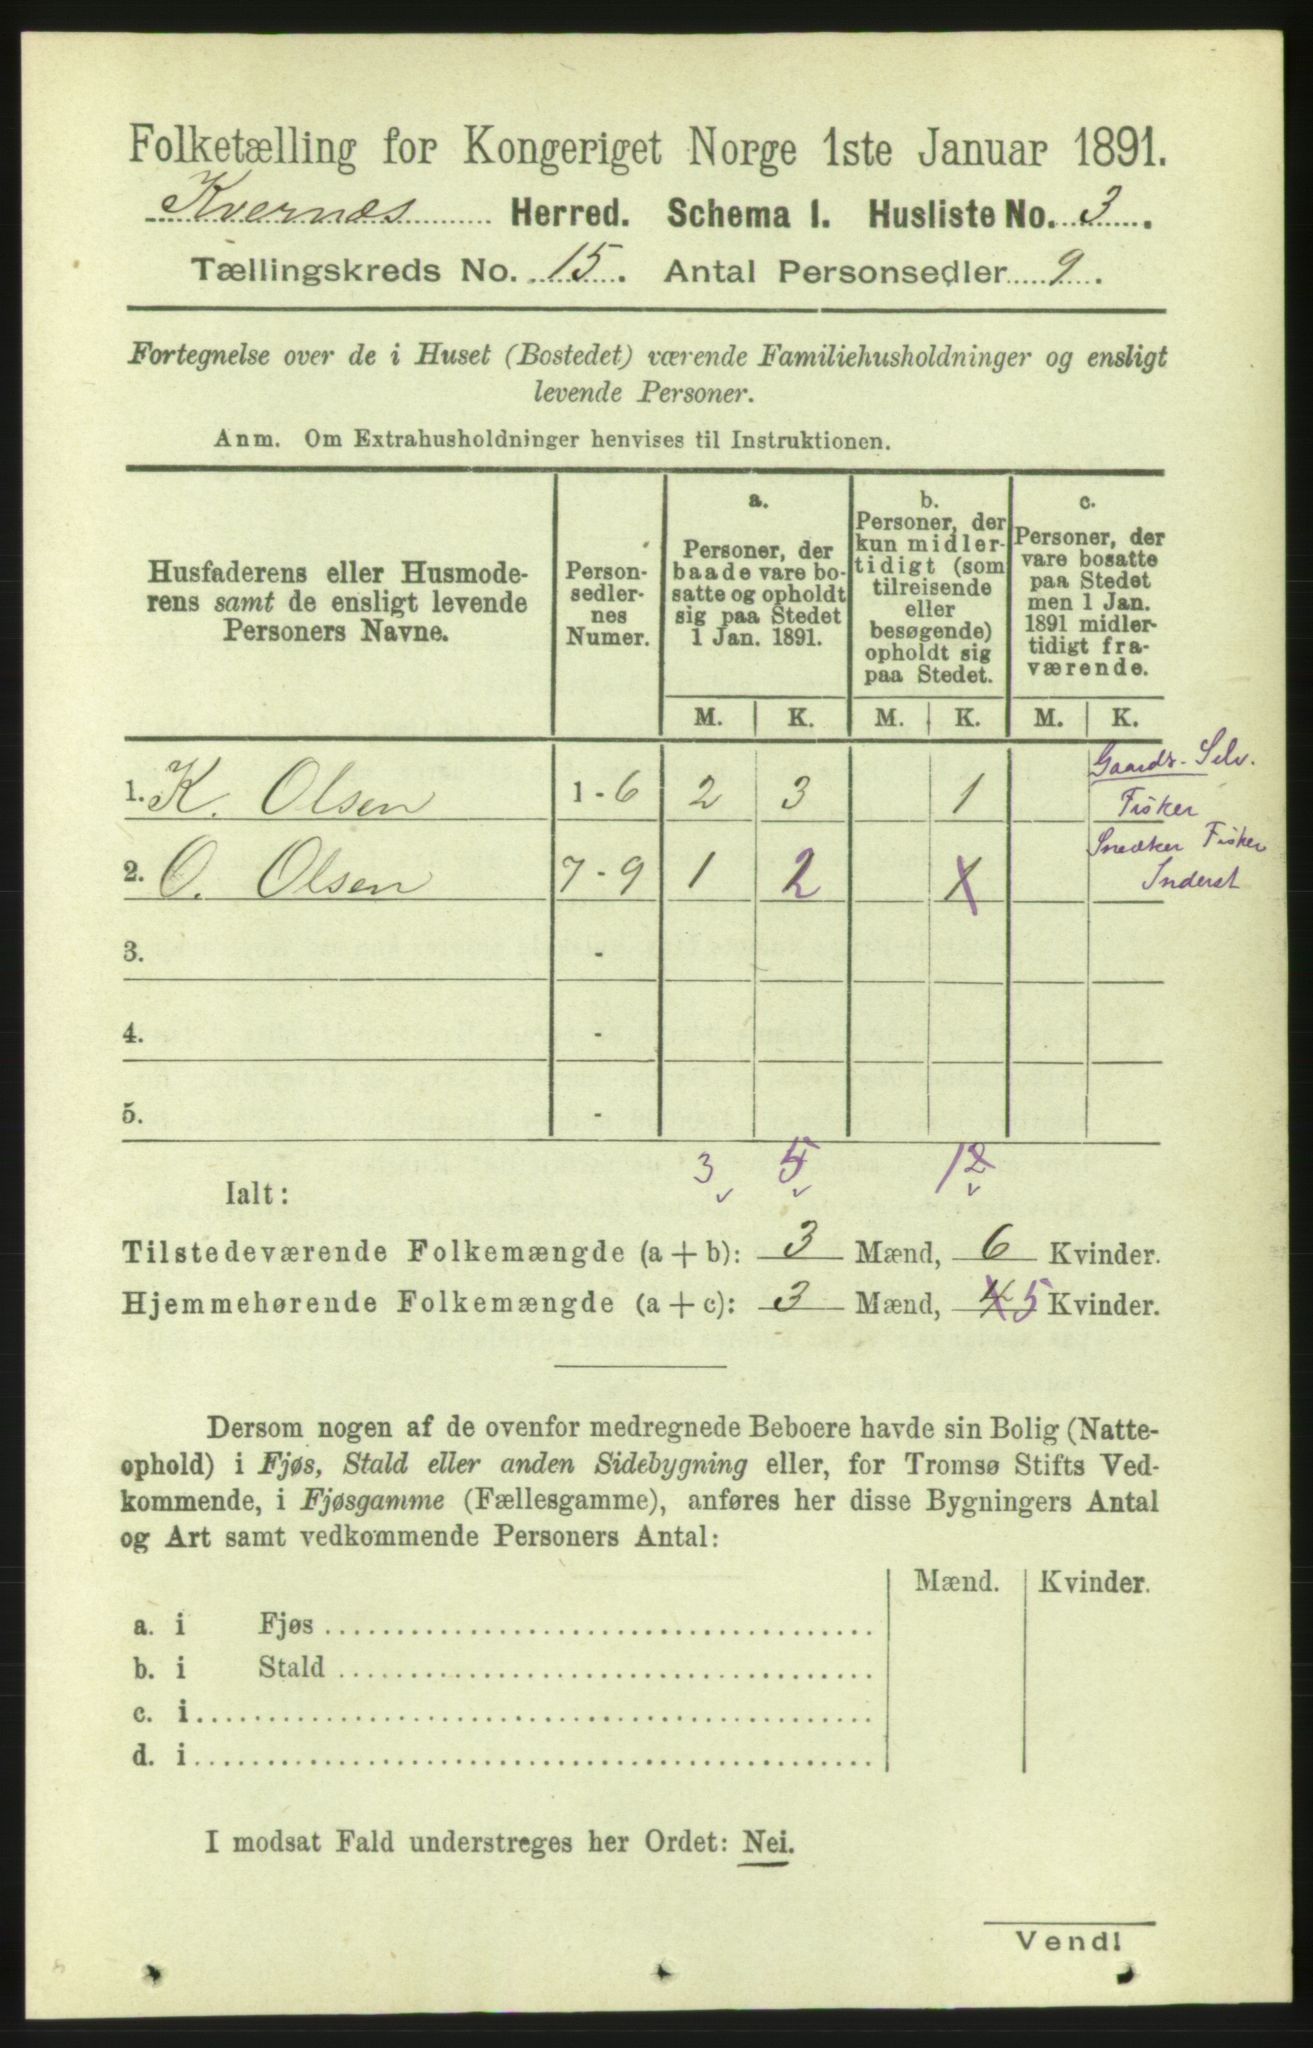 Folketælling for Kongeriget Norge 1ste Januar 1891.
Kvernæs Herred. Schema I. Husliste No. 3.
Tællingskreds No. 15. Antal Personsedler 9.
Fortegnelse over de i Huset (Bostedet) værende Familiehusholdninger og ensligt
levende Personer.
Anm. Om Extrahusholdninger henvises til Instruktionen.
Husfaderens eller Husmode-
rens samt de ensligt levende
Personers Navne.
Person-
sedler-
nes
Numer.
a.
Personer, der
baade vare bo-
satte og opholdt
sig paa Stedet
1 Jan. 1891.
b.
Personer, der
kun midler-
tidigt (som
tilreisende
eller
besøgende)
opholdt sig
paa Stedet.
c.
Personer, der
vare bosatte
paa Stedet
men 1 Jan.
1891 midler-
tidigt fra-
værende.
M. K. M. K. M. K.
Gaards. Selv.
1. K. Olsen 1-6 2 3 1 Fisker
Snedker Fisker
2. O. Olsen 7-9 1 2 1 Inderst
3. -
4. -
5. -
3 5 1 2
Ialt:
Tilstedeværende Folkemængde (a + b): 3 Mænd, 6 Kvinder.
Hjemmehørende Folkemængde (a + c): 3 Mænd, 4 5 Kvinder.
Dersom nogen af de ovenfor medregnede Beboere havde sin Bolig (Natte-
ophold) i Fjøs, Stald eller anden Sidebygning eller, for Tromsø Stifts Ved-
kommende, i Fjøsgamme (Fællesgamme), anføres her disse Bygningers Antal
og Art samt vedkommende Personers Antal:
Mænd. Kvinder.
a. i Fjøs
b. i Stald
c. i
d. i
I modsat Fald understreges her Ordet: Nei.
Vend!